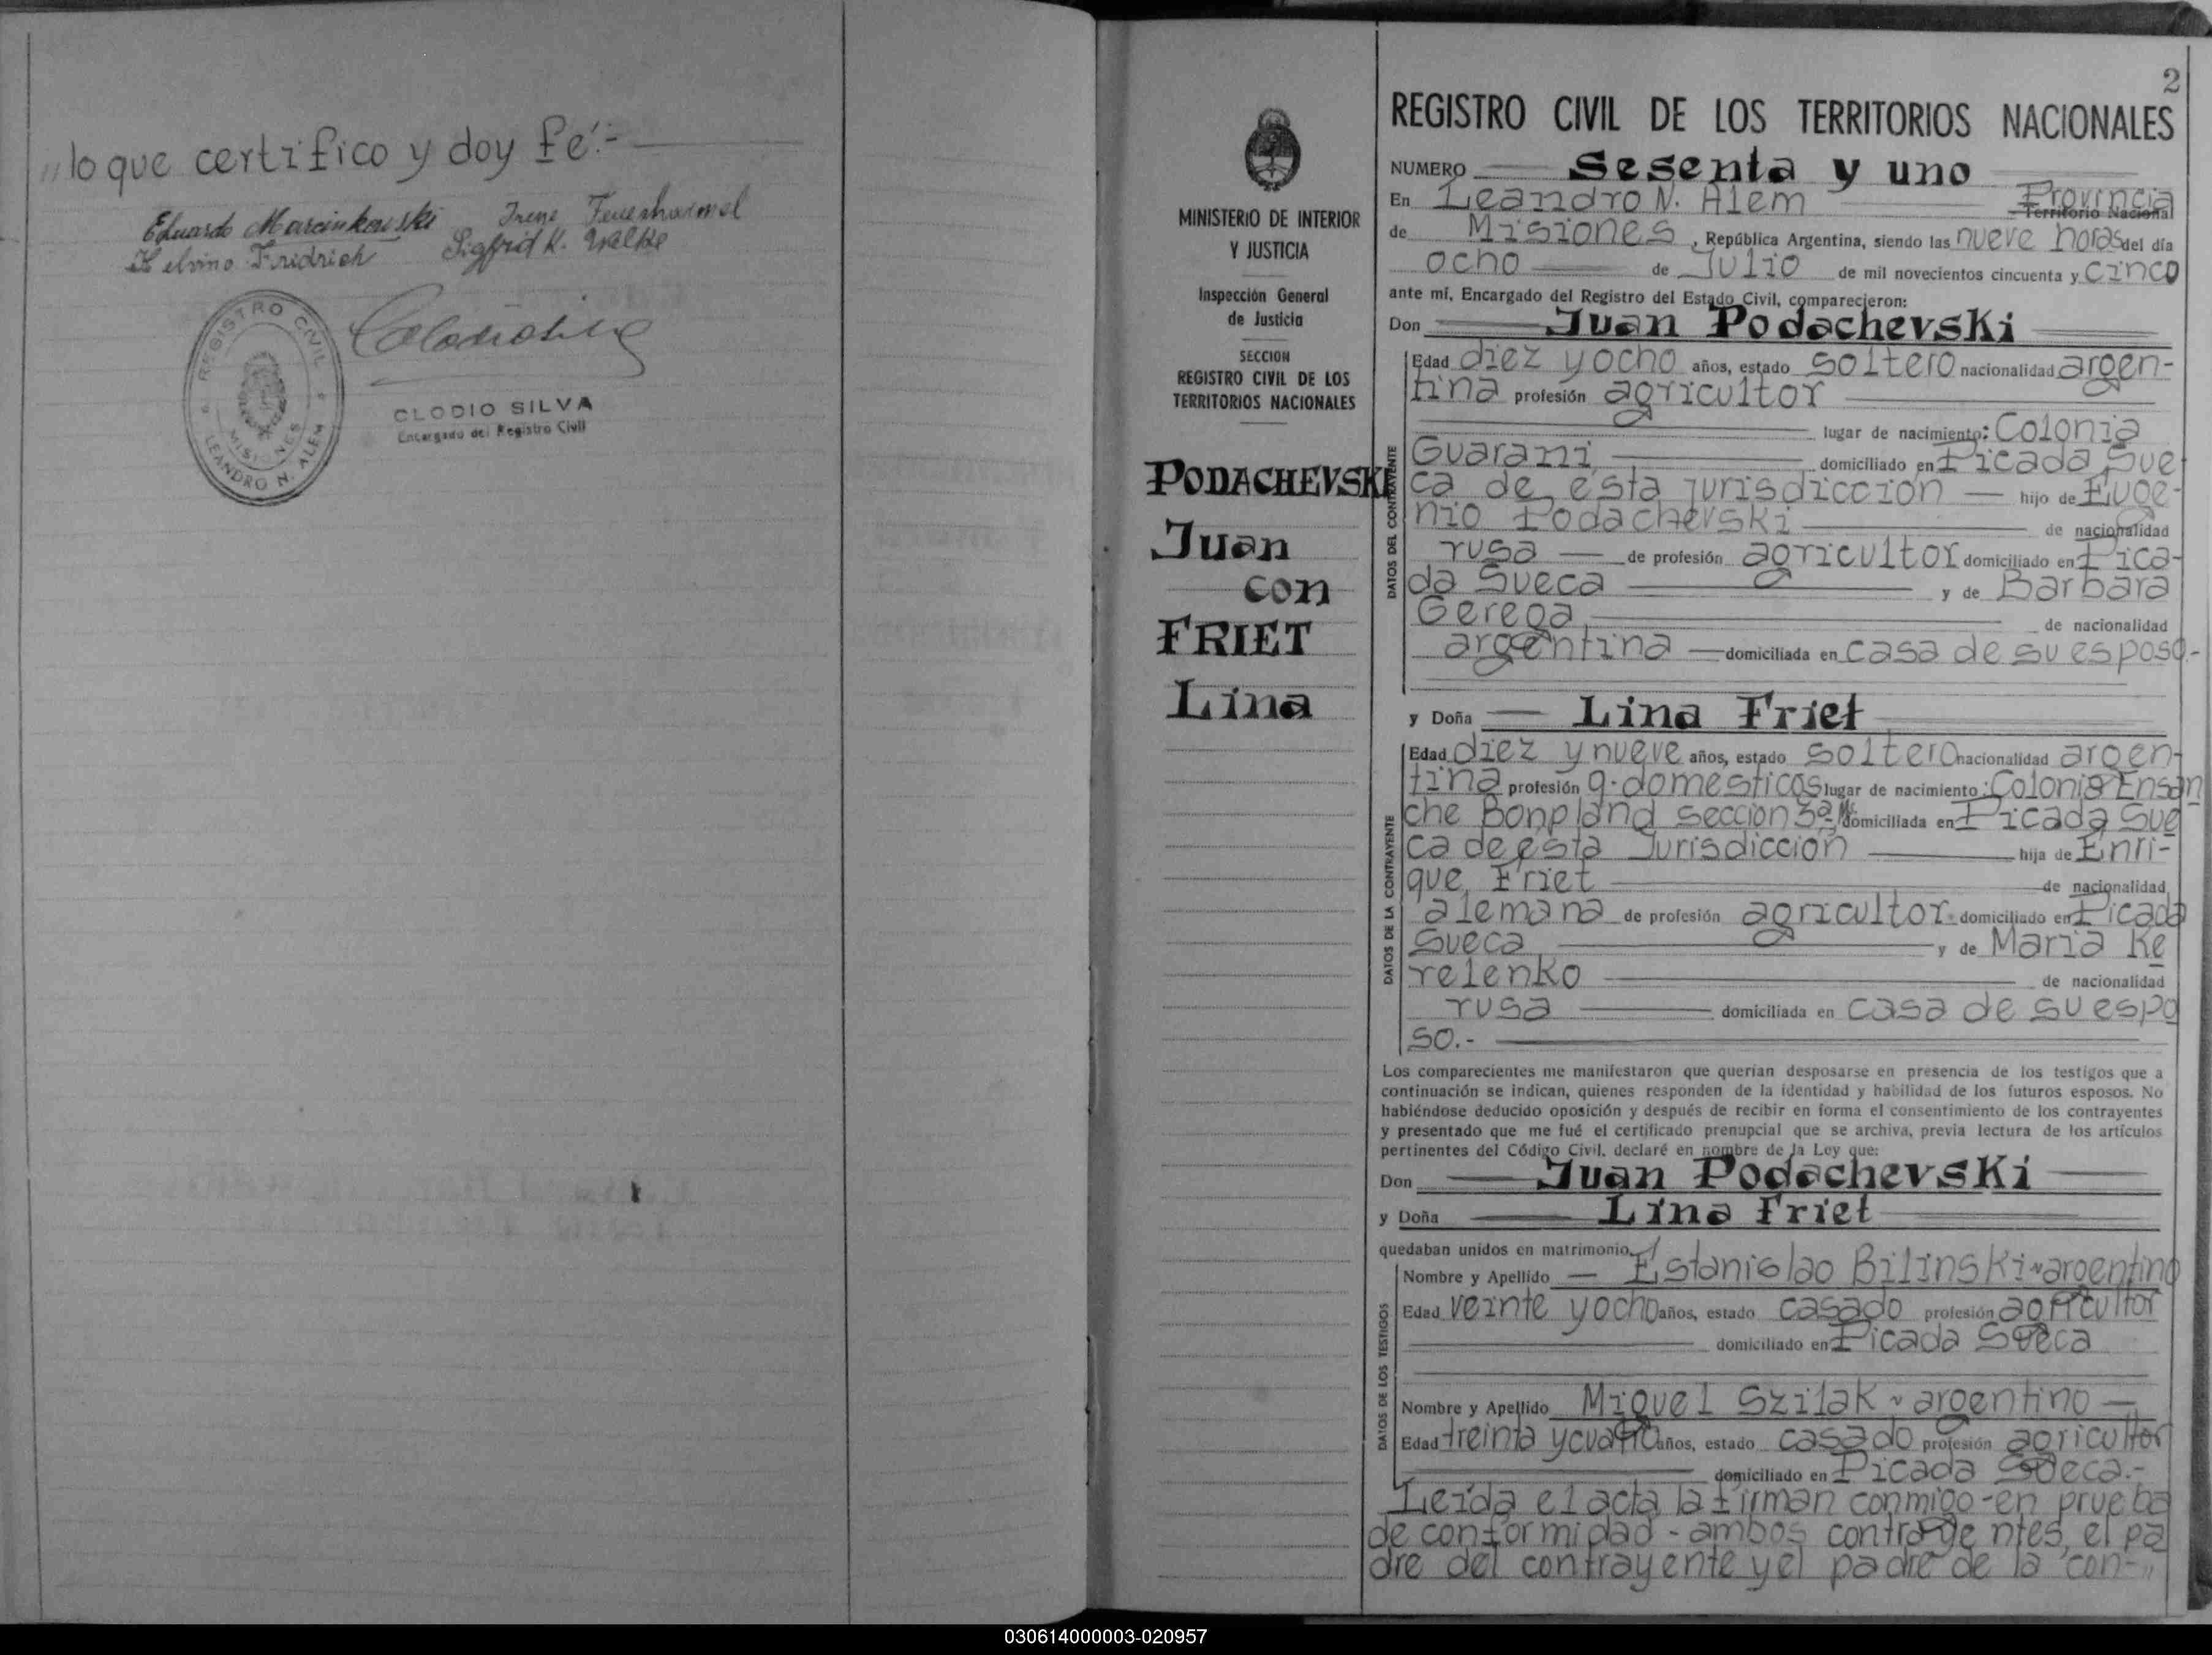 "lo que certifico y doy fé.-
Eduardo Marcinkowski
Irene
Helvino Fridrich
Sigfrid K.
REGISTRO CIVIL
MISIONES
LEANDRO N. ALEM
CLODIO SILVA
Encargado del Registro Civil
MINISTERIO DE INTERIOR
Y JUSTICIA
Inspección General
de Justicia
SECCION
REGISTRO CIVIL DE LOS
TERRITORIOS NACIONALES
PODACHEVSKI
Juan
con
FRIET
Lina
2
REGISTRO CIVIL DE LOS TERRITORIOS NACIONALES
NUMERO Sesenta y uno
En Leandro N. Alem Provincia Territorio Nacional
de Misiones, República Argentina, siendo las nueve horas del día
ocho de Julio de mil novecientos cincuenta y cinco
ante mí, Encargado del Registro del Estado Civil, comparecieron:
Don Juan Podachevski
DATOS DEL CONTRAYENTE
Edad diez y ocho años, estado soltero nacionalidad argen-
tina profesión agricultor
lugar de nacimiento: Colonia
Guarani, domiciliado en Picada Sue
ca de ésta jurisdiccion hijo de Euge-
nio Podachevski de nacionalidad
rusa de profesión agricultor domiciliado en Pica-
da Sueca y de Barbara
Gerega de nacionalidad
argentina domiciliada en casa de su esposo.-
y Doña Lina Friet
DATOS DE LA CONTRAYENTE
Edad diez y nueve años, estado soltero nacionalidad argen-
tina profesión q. domesticos lugar de nacimiento: Colonia Ensan
che Bonpland seccion 3a Ms. domiciliada en Picada Sue
ca de ésta Jurisdiccion hija de Enri-
que Friet de nacionalidad
alemana de profesión agricultor domiciliado en Picada
Sueca y de Maria Ke
relenko de nacionalidad
rusa domiciliada en casa de su espo
so.-
Los comparecientes me manifestaron que querían desposarse en presencia de los testigos que a
continuación se indican, quienes responden de la identidad y habilidad de los futuros esposos. No
habiéndose deducido oposición y después de recibir en forma el consentimiento de los contrayentes
y presentado que me fué el certificado prenupcial que se archiva, previa lectura de los artículos
pertinentes del Código Civil, declaré en nombre de la Ley que:
Don Juan Podachevski
y Doña Lina Friet
quedaban unidos en matrimonio.
DATOS DE LOS TESTIGOS
Nombre y Apellido Estanislao Bilinski ~ argentino
Edad veinte y ocho años, estado casado profesión agricultor
domiciliado en Picada Sueca
Nombre y Apellido Miguel Szilak ~ argentino
Edad treinta y cuatro años, estado casado profesión agricultor
domiciliado en Picada Sueca.-
Leida el acta la firman conmigo - en prueba
de conformidad - ambos contrayentes, el pa
dre del contrayente y el padre de la con-"
030614000003-020957